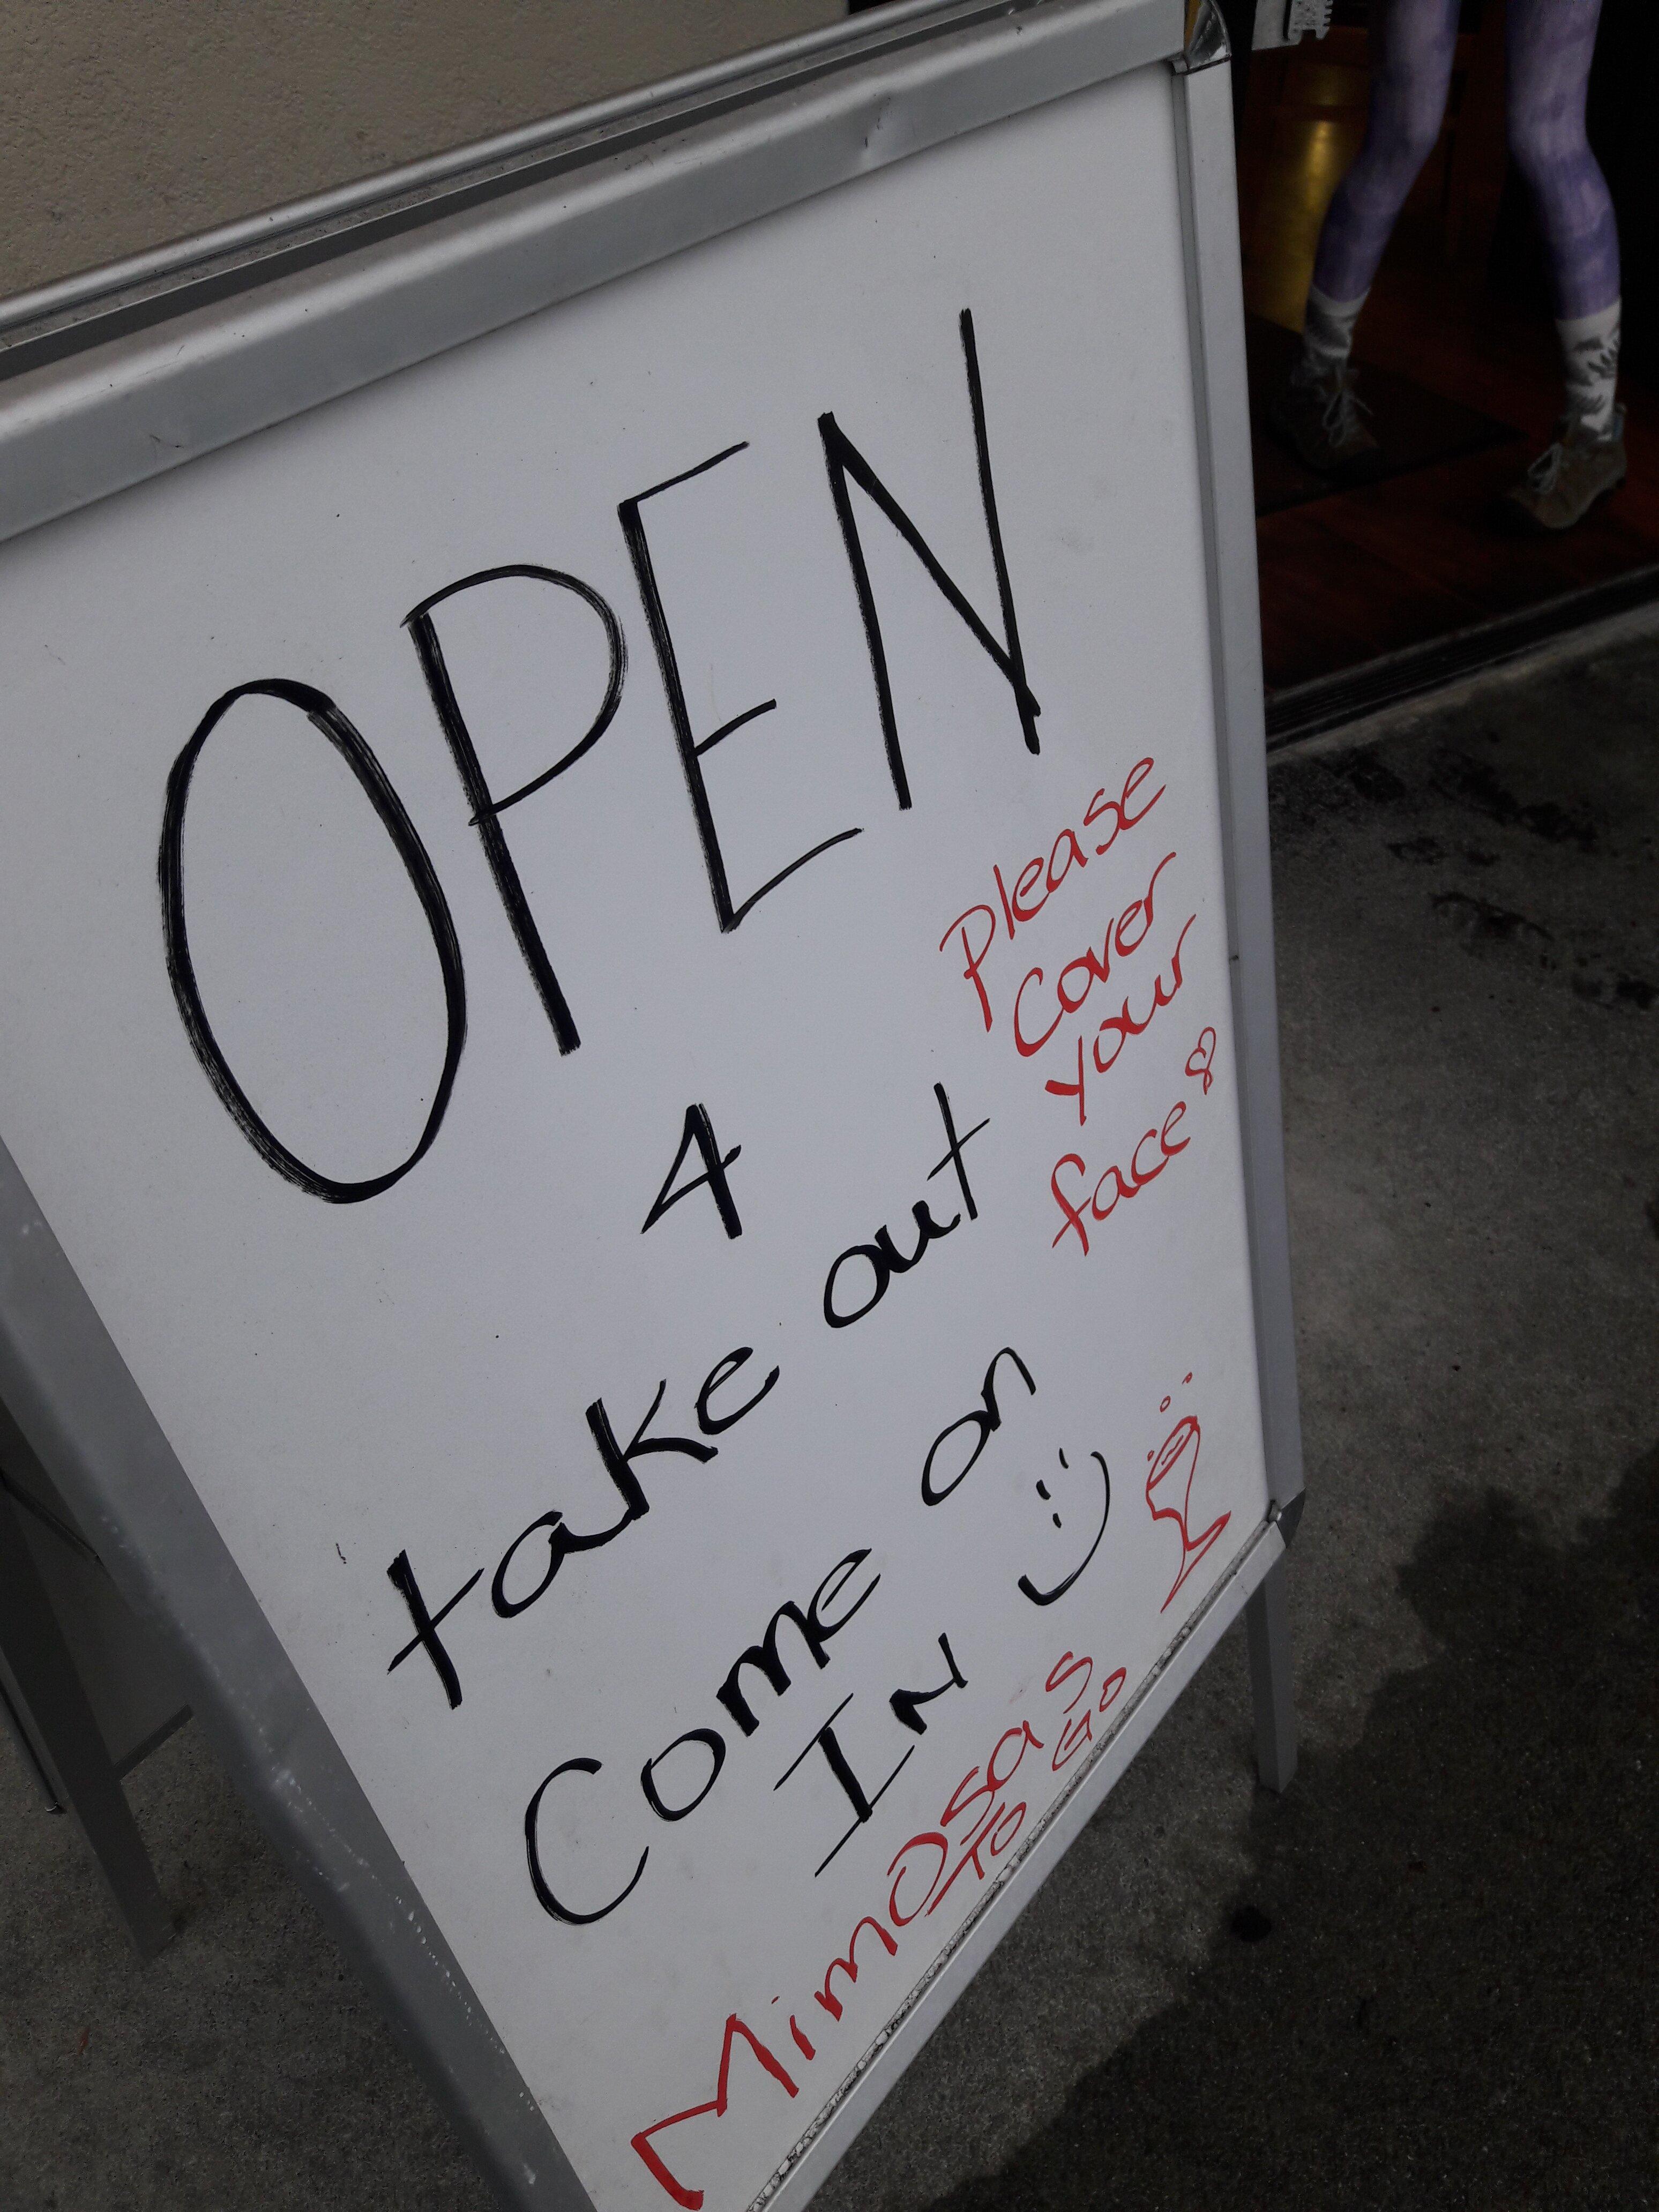 OPEN
4
take out
Come on
IN :)
Please
Cover
your
face
Mimosas
TO GO